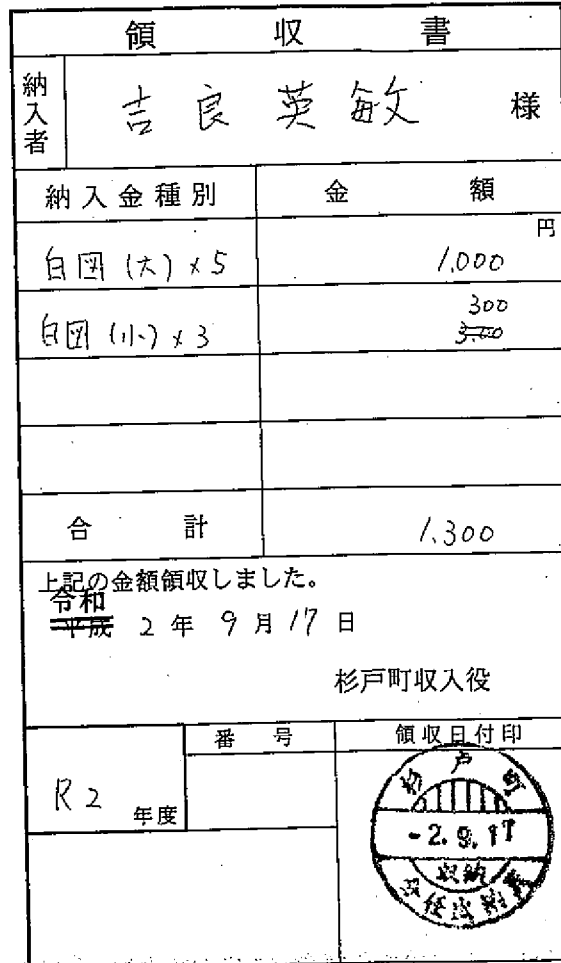 領収書
納入者 吉良英敏 様
納入金種別 金額
円
白図(大)×5 1,000
300
白図(小)×3 3,00
合計 1,300
上記の金額領収しました。
令和
平成 2年 9月 17日
杉戸町収入役
番号 領収日付印
R2 年度
杉戸町
-2.9.17
収納